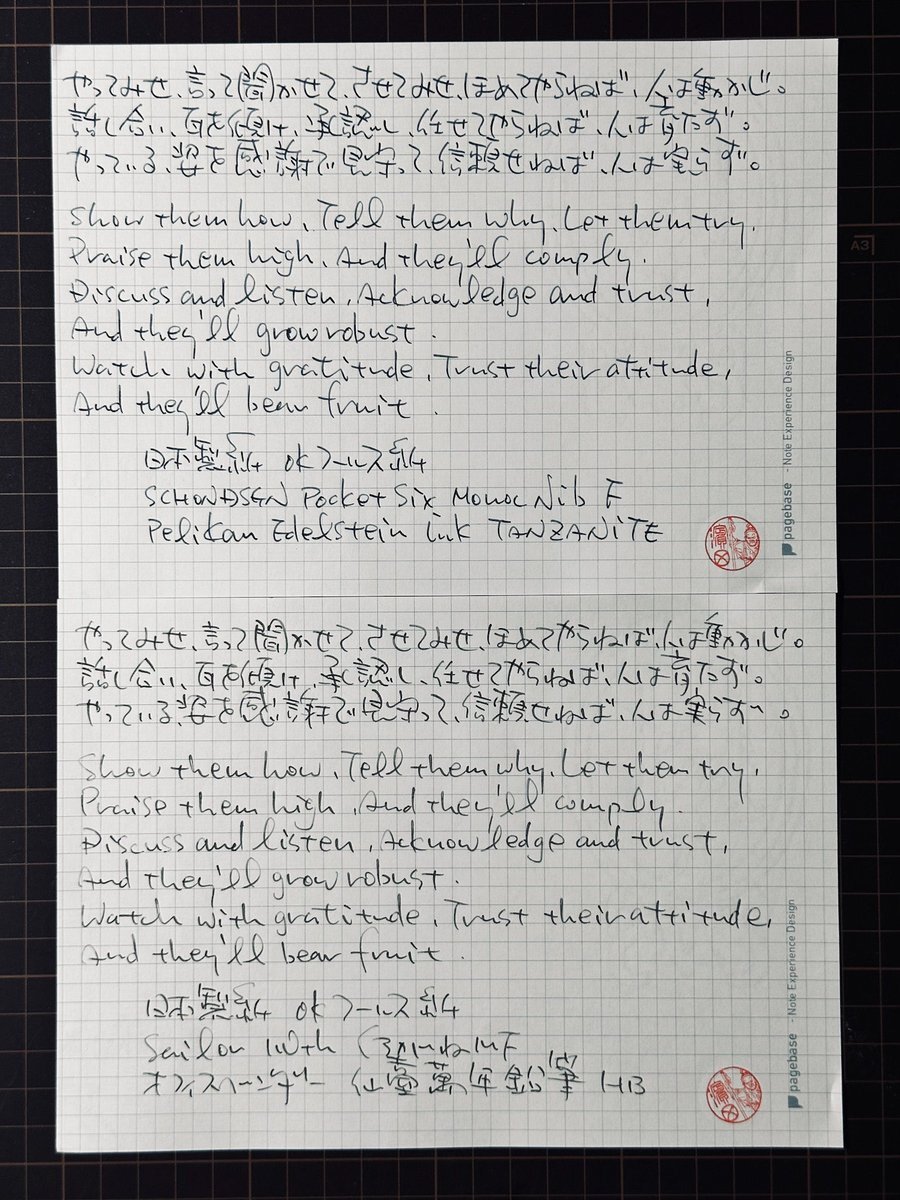 やってみせ、言って聞かせて、させてみせ、ほめてやらねば、人は動かじ。
話し合い、耳を傾け、承認し、任せてやらねば、人は育たず。
やっている、姿を感謝で見守って、信頼せねば、人は実らず。
Show them how, Tell them why, Let them try,
Praise them high, And they'll comply.
Discuss and listen, Acknowledge and trust,
And they'll grow robust.
Watch with gratitude, Trust their attitude,
And they'll bear fruit.
日本製紙 OKフールス紙
SCHONDSGN Pocket Six Monoc Nib F
Pelikan Edelstein ink TANZANITE
pagebase - Note Experience Design
A3
やってみせ、言って聞かせて、させてみせ、ほめてやらねば、人は動かじ。
話し合い、耳を傾け、承認し、任せてやらねば、人は育たず。
やっている、姿を感謝で見守って、信頼せねば、人は実らず。
Show them how, Tell them why, Let them try,
Praise them high, And they'll comply.
Discuss and listen, Acknowledge and trust,
And they'll grow robust.
Watch with gratitude, Trust their attitude,
And they'll bear fruit.
日本製紙 OKフールス紙
Sailor 10th MF
仙臺萬年鉛筆 HB
pagebase - Note Experience Design